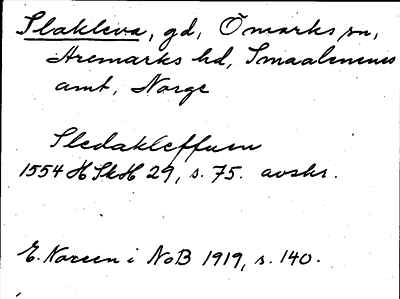 Slakleva, gd, Ömarks sn,
Aremarks hd, Smaalenenes
amt, Norge
Sledakleffuen
1554 H SkH 29, s. 75. avskr.
E. Noreen i NoB 1919, s. 140.